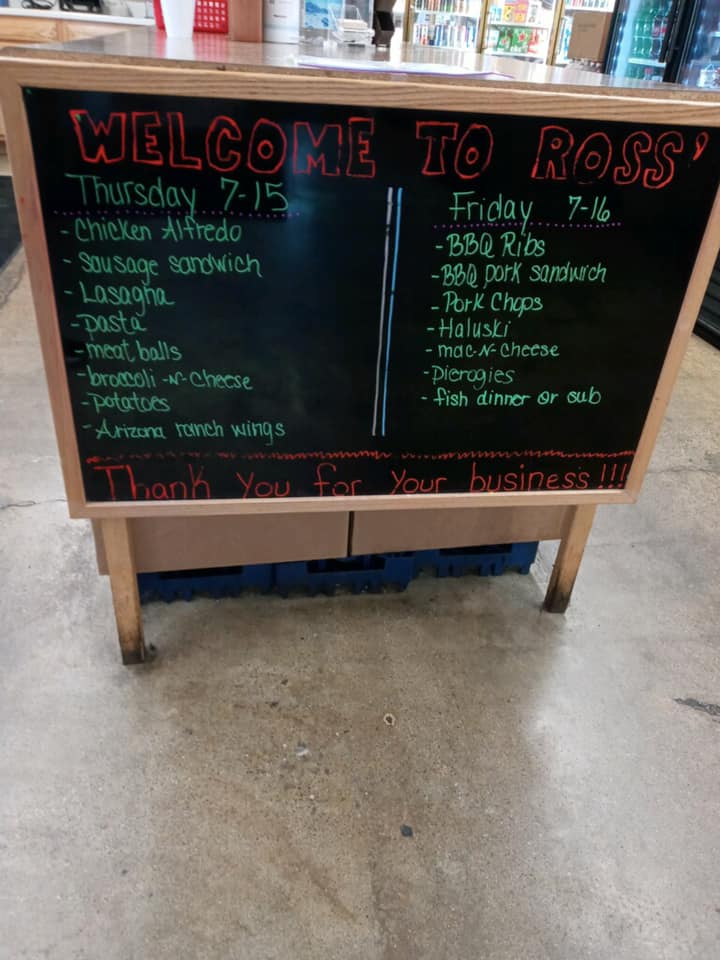 WELCOME TO ROSS'
Thursday 7-15
- Chicken Alfredo
- Sausage sandwich
- Lasagna
- pasta
- meat balls
- broccoli -N- Cheese
- potatoes
- Arizona ranch wings
Friday 7-16
- BBQ Ribs
- BBQ pork sandwich
- Pork Chops
- Haluski
- mac-N-cheese
- Pierogies
- fish dinner or sub
Thank You for Your business!!!